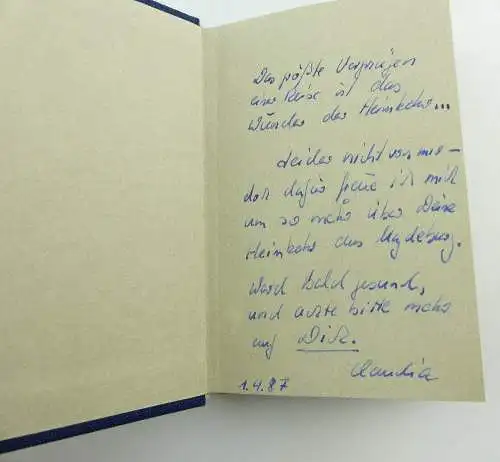 Das größte Vergnügen
einer Reise ist das
Wunder der Heimkehr...
Leider nicht von mir –
doch dafür freue ich mich
um so mehr über Deine
Heimkehr aus Magdeburg.
Werd bald gesund,
und achte bitte mehr
auf Dich.
Claudia
1.4.87